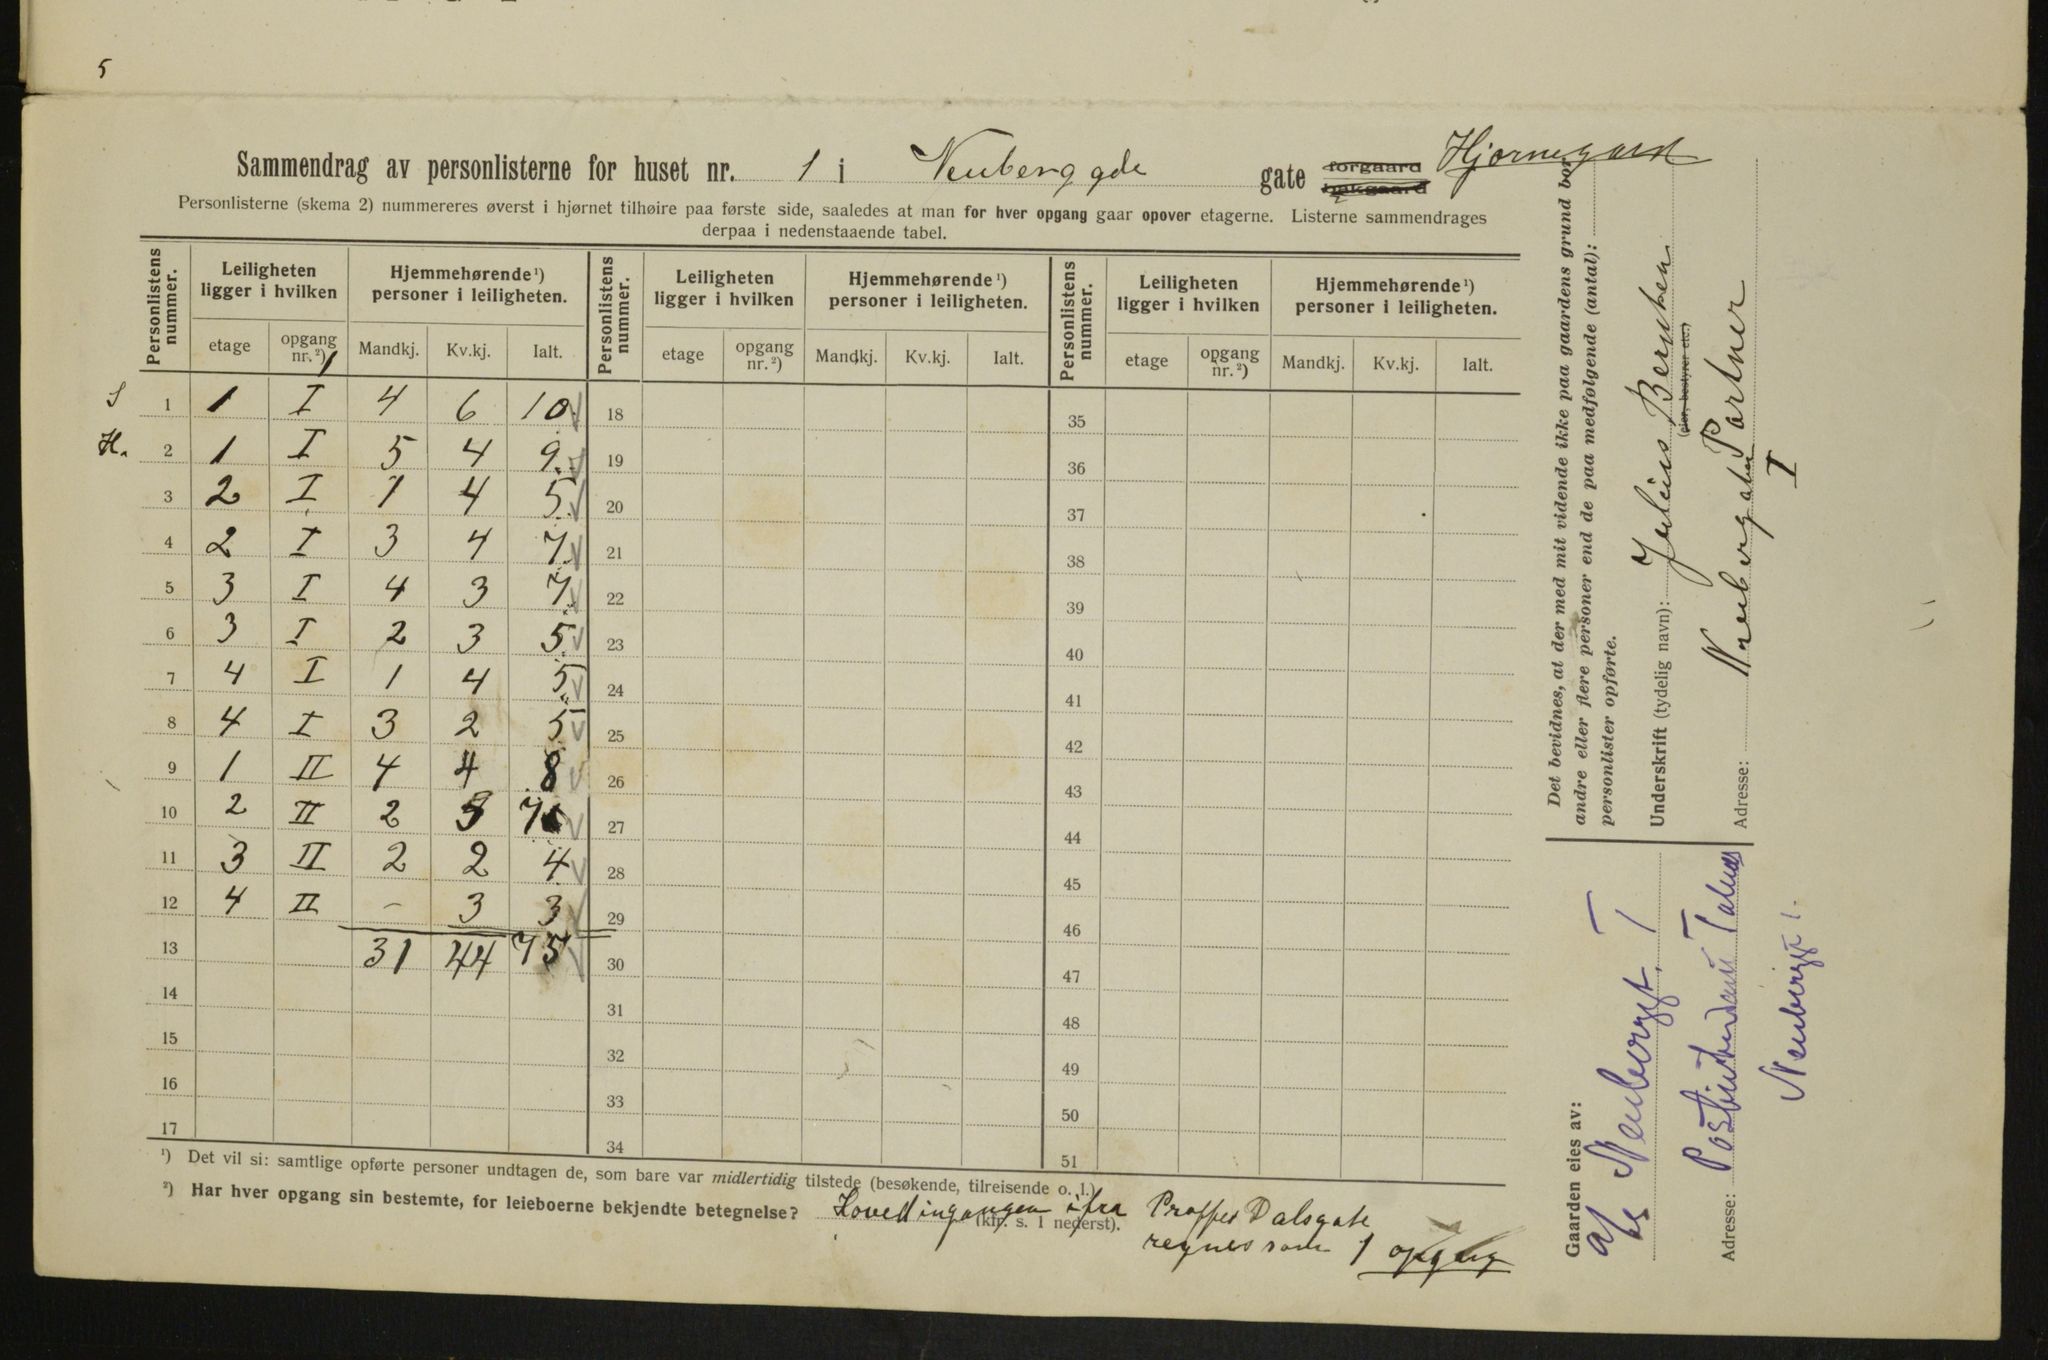 5
Sammendrag av personlisterne for huset nr. 1 i Neuberggde gate forgaard bakgaard Hjørnegaard
Personlisterne (skema 2) nummereres øverst i hjørnet tilhøire paa første side, saaledes at man for hver opgang gaar opover etagerne. Listerne sammendrages
derpaa i nedenstaaende tabel.
Personlistens nummer. Leiligheten ligger i hvilken Hjemmehørende¹) personer i leiligheten. Personlistens nummer. Leiligheten ligger i hvilken Hjemmehørende¹) personer i leiligheten. Personlistens nummer. Leiligheten ligger i hvilken Hjemmehørende¹) personer i leiligheten.
etage opgang nr.²) 1 Mandkj. Kv.kj. Ialt. etage opgang nr.²) Mandkj. Kv.kj. Ialt. etage opgang nr.²) Mandkj. Kv.kj. Ialt.
S 1 1 I 4 6 10 18 35
H. 2 1 I 5 4 9. 19 36
3 2 I 1 4 5 20 37
4 2 I 3 4 7 21 38
5 3 I 4 3 7. 22 39
6 3 I 2 3 5. 23 40
7 4 I 1 4 5 24 41
8 4 I 3 2 5 25 42
9 1 II 4 4 8 26 43
10 2 II 2 5 7 27 44
11 3 II 2 2 4 28 45
12 4 II – 3 3 29 46
13 31 44 75 30 47
14 31 48
15 32 49
16 33 50
17 34 51
¹) Det vil si: samtlige opførte personer undtagen de, som bare var midlertidig tilstede (besøkende, tilreisende o. l.)
²) Har hver opgang sin bestemte, for leieboerne bekjendte betegnelse? Hovedingangen ifra Proffes Dalsgate
(kfr. s. 1 nederst).
regnes som 1 opgang
Det bevidnes, at der med mit vidende ikke paa gaardens grund bor
andre eller flere personer end de paa medfølgende (antal):
personlister opførte.
Underskrift (tydelig navn): Julius Berntsen
(eier, bestyrer etc.)
Partner
Adresse: Neuberggaten
I
Gaarden eies av:
a/s Neubergt. I
Adresse:
Neubergt 1.